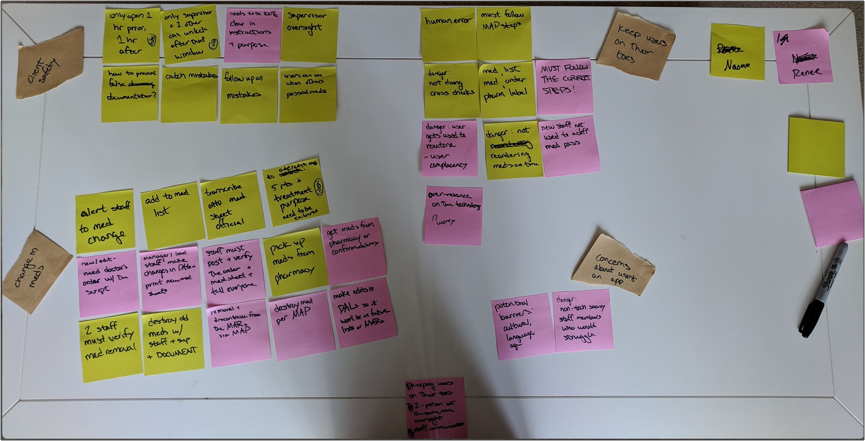 only open 1
hr prior,
1 hr
after
only supervisor
+ 1 other
can unlock
after that
window
needs to be
clear in
instructions
+ purpose
supervisor
oversight
how to prevent
false
documentation?
catch mistakes
follow up on
mistakes
users on
when others
passed meds
client
safety
human error
must follow
MAP steps
danger:
not doing
cross checks
med list
med order
pharm label
MUST FOLLOW
THE CORRECT
STEPS!
danger: user
gets used to
routine
- user
complacency
danger: not
reordering
meds on time
new staff not
used to a diff
med pass
over-reliance
on the technology
? worry
keep users
on their
toes
Naome
Renee
alert staff
to med
change
add to med
list
transcribe
onto med
sheet
official
to
5 rts +
treatment
purpose
need to be
new/edit-
need doctor's
order w/ the
script
manager/lead
staff make
changes in
print new med
sheets
staff must
post + verify
the order +
med sheet +
tell everyone
pick up
meds from
pharmacy
get meds from
pharmacy or
2 staff
must verify
med removal
destroy old
meds w/
staff + sup
+ DOCUMENT
removal +
discontinue from
the MAR
via MAP
destroy med
per MAP
make edits in
PALs so it
won't be in future
lists or MARs
change in
meds
concerns
about users
on app
potential
barriers:
cultural,
language,
age
danger:
non-tech savvy
staff members
who would
struggle
keeping users
on their toes
2-person
oversight